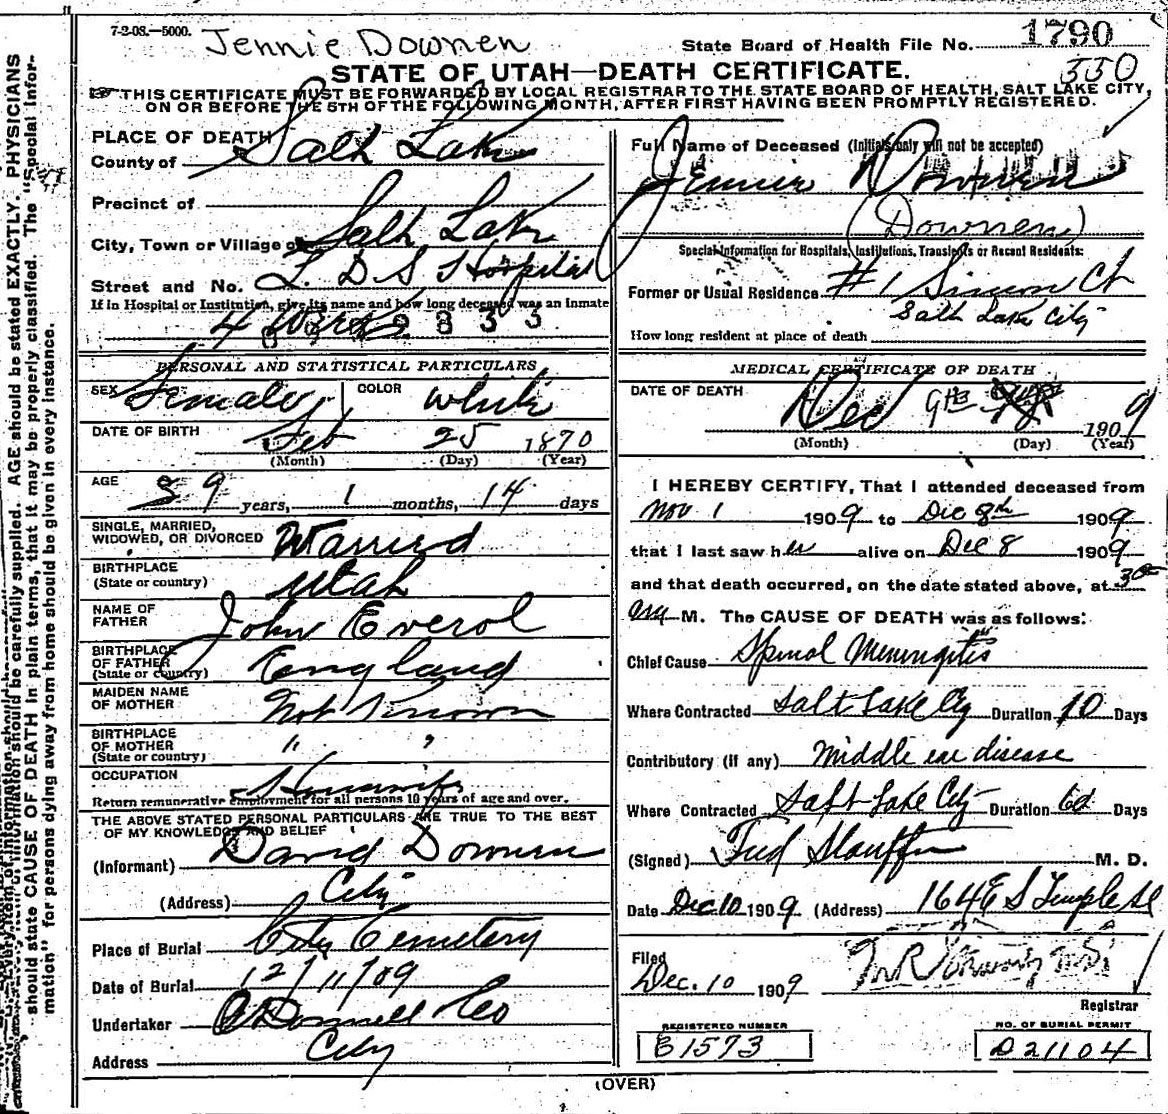 7-2-08.—5000.
Jennie Downen
State Board of Health File No. 1790
330
STATE OF UTAH—DEATH CERTIFICATE.
THIS CERTIFICATE MUST BE FORWARDED BY LOCAL REGISTRAR TO THE STATE BOARD OF HEALTH, SALT LAKE CITY,
ON OR BEFORE THE 5TH OF THE FOLLOWING MONTH, AFTER FIRST HAVING BEEN PROMPTLY REGISTERED.
PLACE OF DEATH
County of Salt Lake
Precinct of
City, Town or Village of Salt Lake
Street and No. L. D S Hospital
If in Hospital or Institution, give its name and how long deceased was an inmate
4 Weeks
PERSONAL AND STATISTICAL PARTICULARS
SEX Female COLOR White
DATE OF BIRTH Feb 25 1870
(Month) (Day) (Year)
AGE 39 years, 1 months, 14 days
SINGLE, MARRIED,
WIDOWED, OR DIVORCED Married
BIRTHPLACE
(State or country) Utah
NAME OF
FATHER John Everol
BIRTHPLACE
OF FATHER
(State or country) England
MAIDEN NAME
OF MOTHER Not Known
BIRTHPLACE
OF MOTHER
(State or country) " "
OCCUPATION Housewife
Return remunerative employment for all persons 10 years of age and over.
THE ABOVE STATED PERSONAL PARTICULARS ARE TRUE TO THE BEST
OF MY KNOWLEDGE AND BELIEF
(Informant) David Downen
(Address) City
Place of Burial City Cemetery
Date of Burial 12/11/09
Undertaker O'Donnell & Co
Address City
Full Name of Deceased (Initials only will not be accepted)
Jennie Downen
(Downen)
Special Information for Hospitals, Institutions, Transients or Recent Residents:
Former or Usual Residence #1 Simon Ct
Salt Lake City
How long resident at place of death
MEDICAL CERTIFICATE OF DEATH
DATE OF DEATH Dec 9th 1909
(Month) (Day) (Year)
I HEREBY CERTIFY, That I attended deceased from
Nov 1 1909 to Dec 8th 1909
that I last saw her alive on Dec 8 1909
and that death occurred, on the date stated above, at 3
am M. The CAUSE OF DEATH was as follows:
Chief Cause Spinal Meningitis
Where Contracted Salt Lake Cty Duration 10 Days
Contributory (if any) Middle ear disease
Where Contracted Salt Lake City Duration 60 Days
(Signed) Fred Stauffer M. D.
Date Dec. 10 1909 (Address) 164 E S Temple St
Filed
Dec. 10 1909
Registrar
REGISTERED NUMBER
B1573
NO. OF BURIAL PERMIT
D21104
(OVER)
should be carefully supplied. AGE should be stated EXACTLY. PHYSICIANS
should state CAUSE OF DEATH in plain terms, that it may be properly classified. The "Special Infor-
mation" for persons dying away from home should be given in every instance.